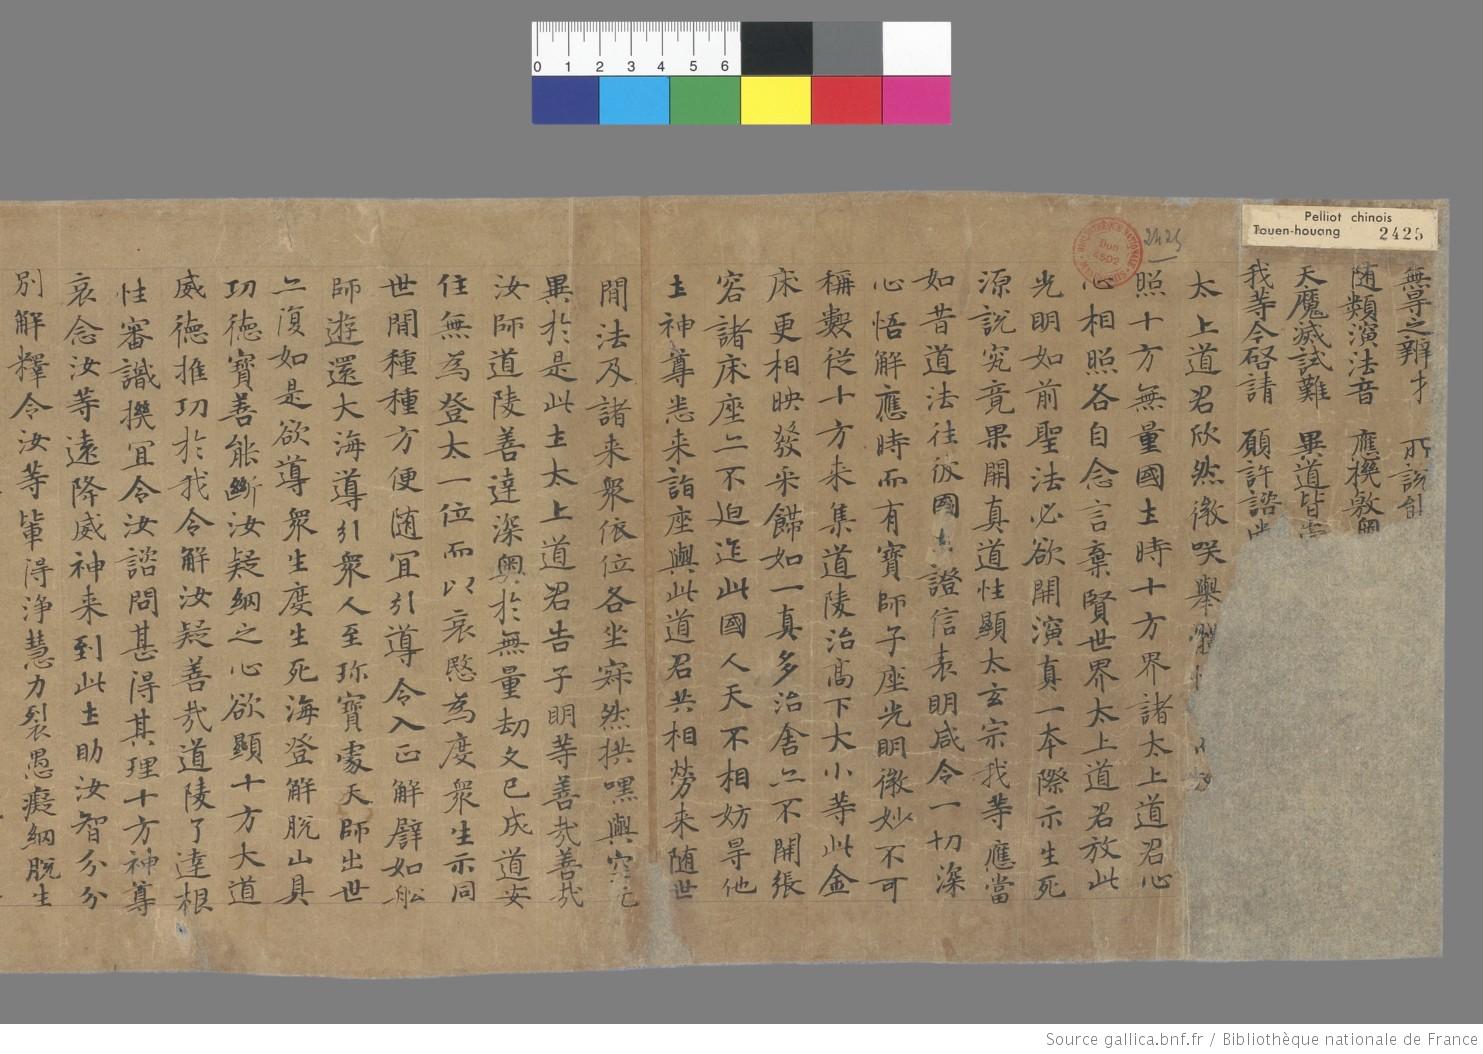 0 1 2 3 4 5 6
Pelliot chinois
Touen-houang 2425
2425
BIBLIOTHÈQUE NATIONALE
Don
4502
無㝵之辯才 所說
隨類演法音 應機敷
天魔滅試難 異道皆
我等今啓請 願許諮
太上道君欣然微咲舉
照十方無量國土時十方界諸太上道君心
心相照各自念言棄賢世界太上道君放此
光明如前聖法必欲開演真一本際示生死
源說究竟果開真道性顯太玄宗我等應當
如昔道法往彼國土證信表明咸令一切深
心悟解應時而有寶師子座光明微妙不可
稱數從十方來集道陵治高下大小等此金
床更相映發采餙如一真多治舍亦不開張
容諸床座亦不迫迮此國人天不相妨㝵他
土神尊悉来詣座與此道君共相勞来隨世
間法及諸来衆依位各坐寂然拱嘿與空无
異於是此土太上道君告子明等善哉善哉
汝師道陵善達深奧於無量劫久已成道安
住無為登太一位而以哀愍為度衆生示同
世間種種方便随冝引導令入正解譬如舩
師遊還大海導引衆人至珎寶處天師出世
亦復如是欲導衆生度生死海登解脫山具
功德寶善能断汝疑網之心欲顯十方大道
威德推功於我令解汝疑善哉道陵了達根
性審識機冝令汝諮問甚得其理十方神尊
哀念汝等遠降威神来到此土助汝智分分
別解釋令汝等軰得淨慧力裂愚癡網脫生
Source gallica.bnf.fr / Bibliothèque nationale de France